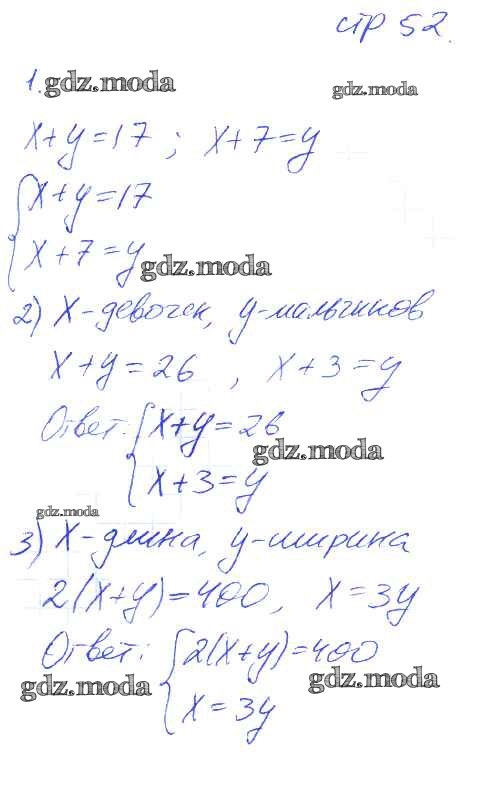 стр 52.
1. gdz.moda gdz.moda
x+y=17 ; x+7=y
{x+y=17
x+7=y
gdz.moda
2) x-девочек, y-мальчиков
x+y=26 , x+3=y
Ответ: {x+y=26
gdz.moda
x+3=y
gdz.moda
3) x-длина, y-ширина
2(x+y)=400, x=3y
Ответ: {2(x+y)=400
gdz.moda gdz.moda
x=3y